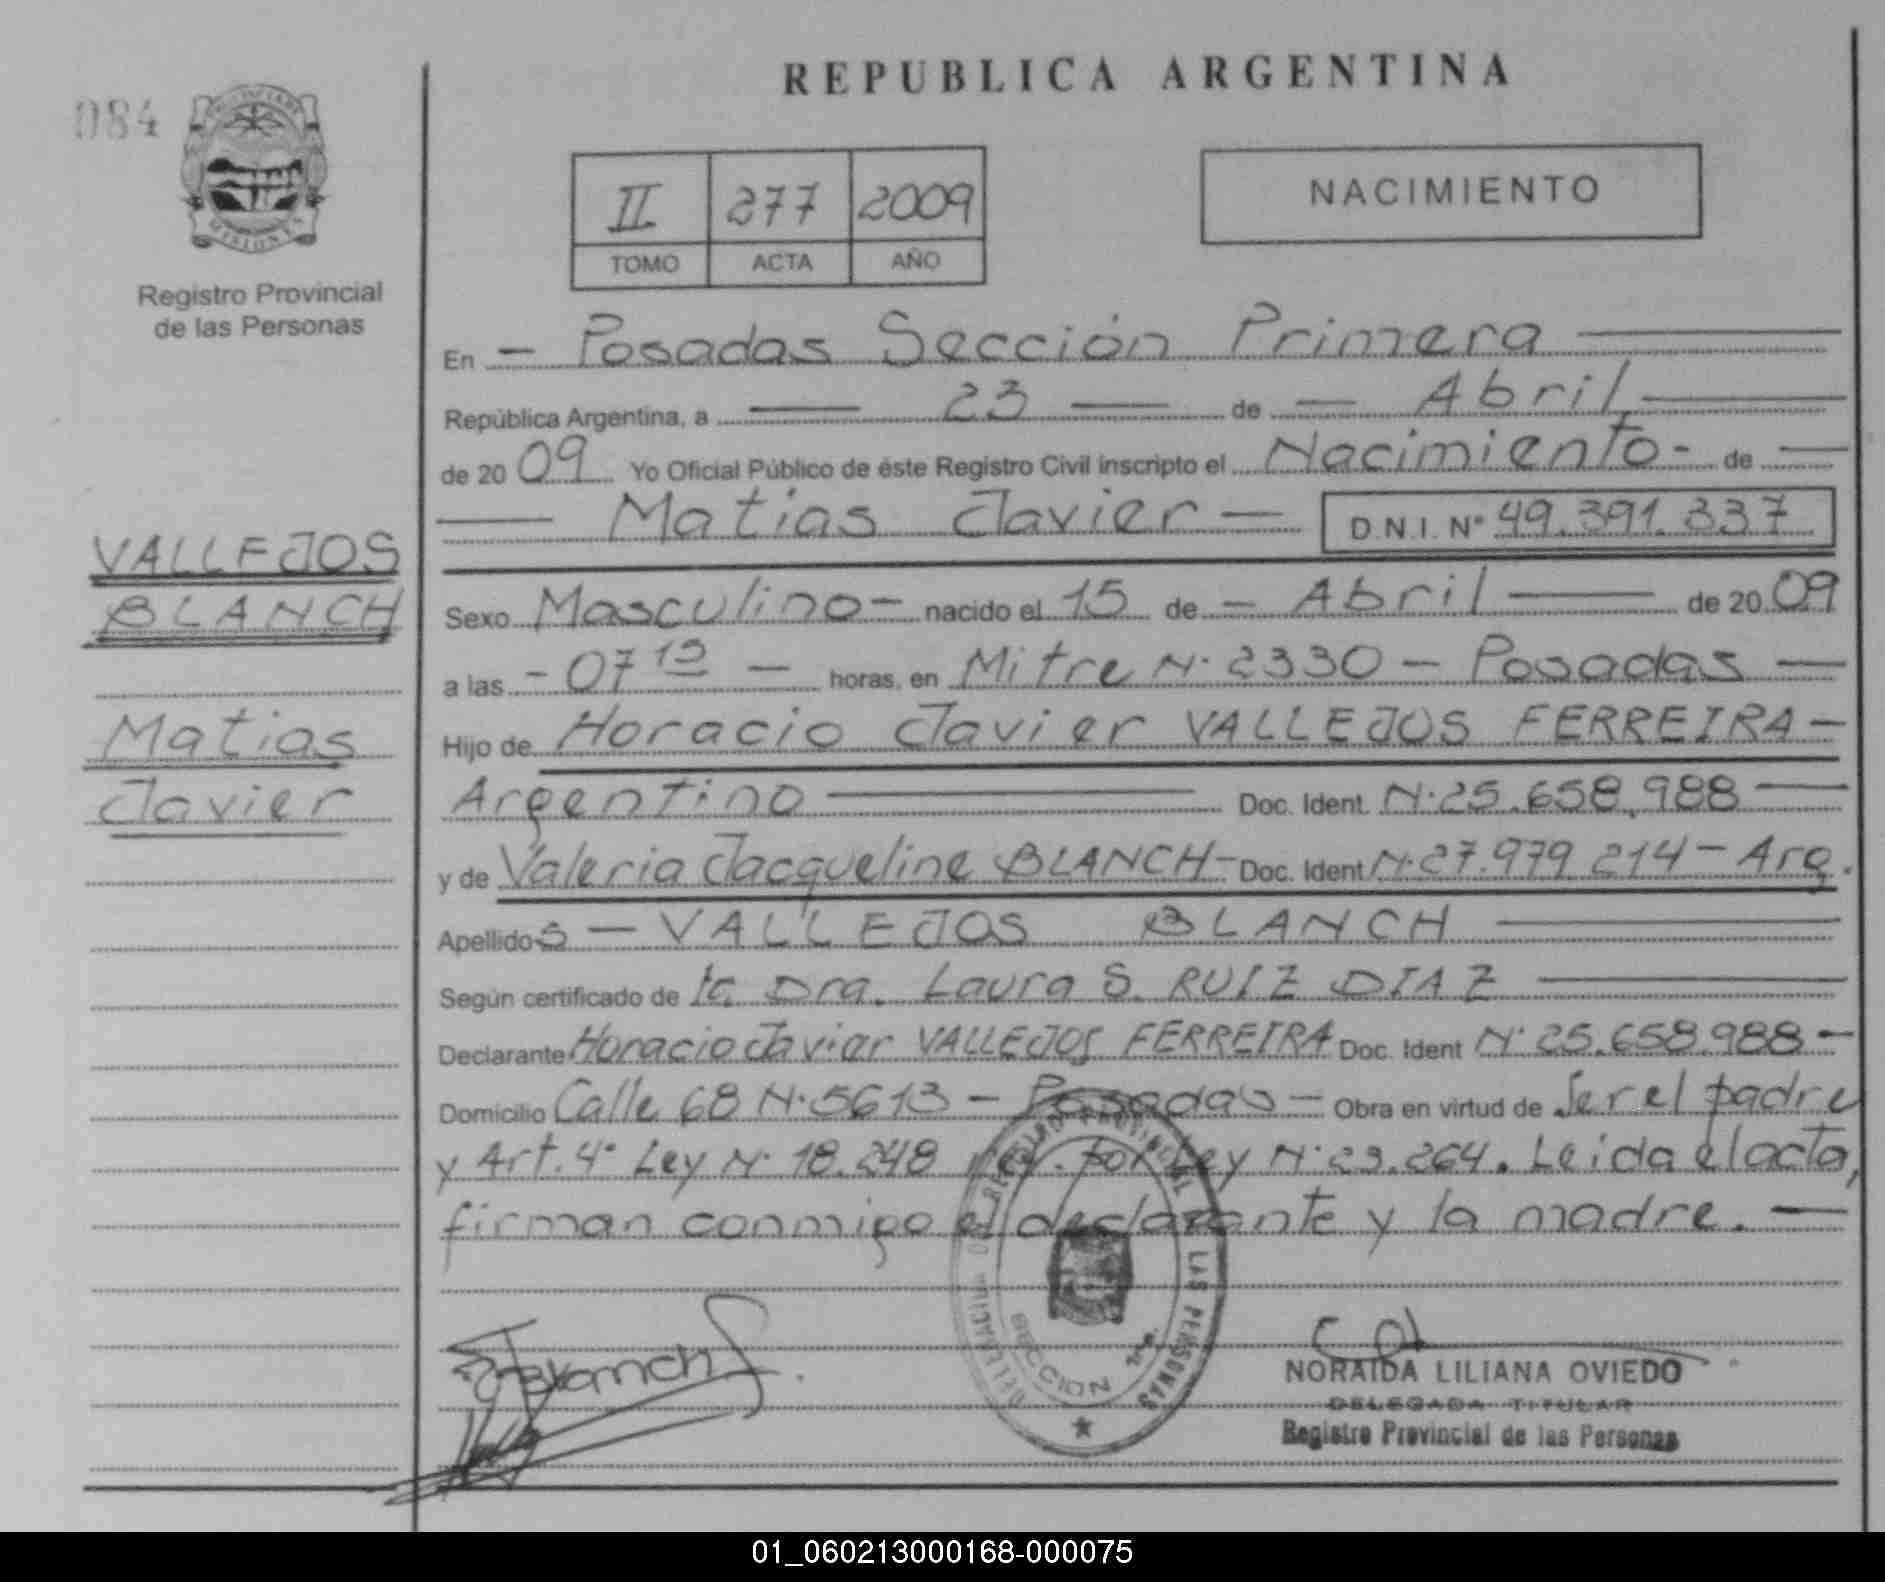 REPUBLICA ARGENTINA
084
PROVINCIA DE
MISIONES
Registro Provincial
de las Personas
II 277 2009
TOMO ACTA AÑO
NACIMIENTO
En - Posadas Sección Primera
República Argentina, a 23 de - Abril,
de 20 09 Yo Oficial Público de éste Registro Civil inscripto el Nacimiento - de
Matias Javier - D.N.I. Nº 49.391.337
VALLEJOS
BLANCH
Matias
Javier
Sexo Masculino - nacido el 15 de - Abril de 20 09
a las - 07 15 - horas, en Mitre N· 2330 - Posadas -
Hijo de Horacio Javier VALLEJOS FERREIRA -
Argentino Doc. Ident. N· 25.658.988
y de Valeria Jacqueline BLANCH - Doc. Ident N· 27.979.214 - Arg.
Apellido s - VALLEJOS BLANCH
Según certificado de la Dra. Laura S. RUIZ DIAZ
Declarante Horacio Javier VALLEJOS FERREIRA Doc. Ident N· 25.658.988 -
Domicilio Calle 68 N· 5613 - Posadas - Obra en virtud de Ser el padre
y Art. 4° Ley N· 18.248 por Ley N· 23.264. Leida el acta,
firman conmigo el declarante y la madre. -
REGISTRO PROVINCIAL
LAS PERSONAS
SECCION
Blanch
NORAIDA LILIANA OVIEDO
DELEGADA TITULAR
Registro Provincial de las Personas
01_060213000168-000075